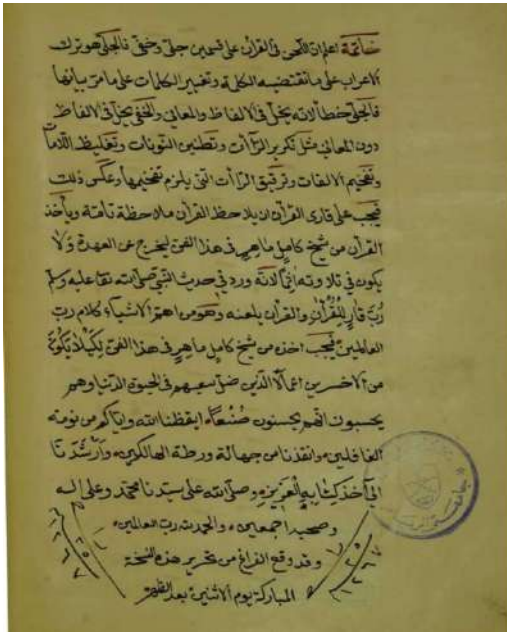 خاتمة اعلم ان اللحن في القرآن على قسمين جلي وخفي فالجلي هو ترك
الاعراب على ما تقتضيه الكلمة وتغيير الكلمات على ما مر بيانها
فالجلي خطأ لانه يخل في الالفاظ والمعاني والخفي يخل في الالفاظ
دون المعاني مثل تكرير الراآت وتطنين النونات وتغليظ اللامات
وتفخيم الالفات وترقيق الراآت التي يلزم تفخيمها وعكس ذلك
فيجب على قارى القرآن ان يلاحظ القرآن ملاحظة تامة ويأخذ
القرآن من شيخ كامل ماهر في هذا الفن ليخرج عن العهدة ولا
يكون في تلاوته اثما لانه ورد في حديث النبي صلى الله تعا عليه وسلم
رب قار للقرآن والقرآن يلعنه وهو من اهم الاشياء كلام رب
العالمين فيجب اخذه من شيخ كامل ماهر في هذا الفن لكيلا يكون
من الاخسرين اعمالا الذين ضل سعيهم في الحيوة الدنيا وهم
يحسبون انهم يحسنون صنعا ايقظنا الله واياكم من نومة
الغافلين وانقذنا من جهالة ورطة الهالكين وارشدنا
الى آخذ كتابه العزيز وصلى الله على سيدنا محمد وعلى اله
وصحبه اجمعين والحمد لله رب العالمين
وقد وقع الفراغ من تحرير هذه النسخة
المباركة يوم الاثنين بعد الظهر